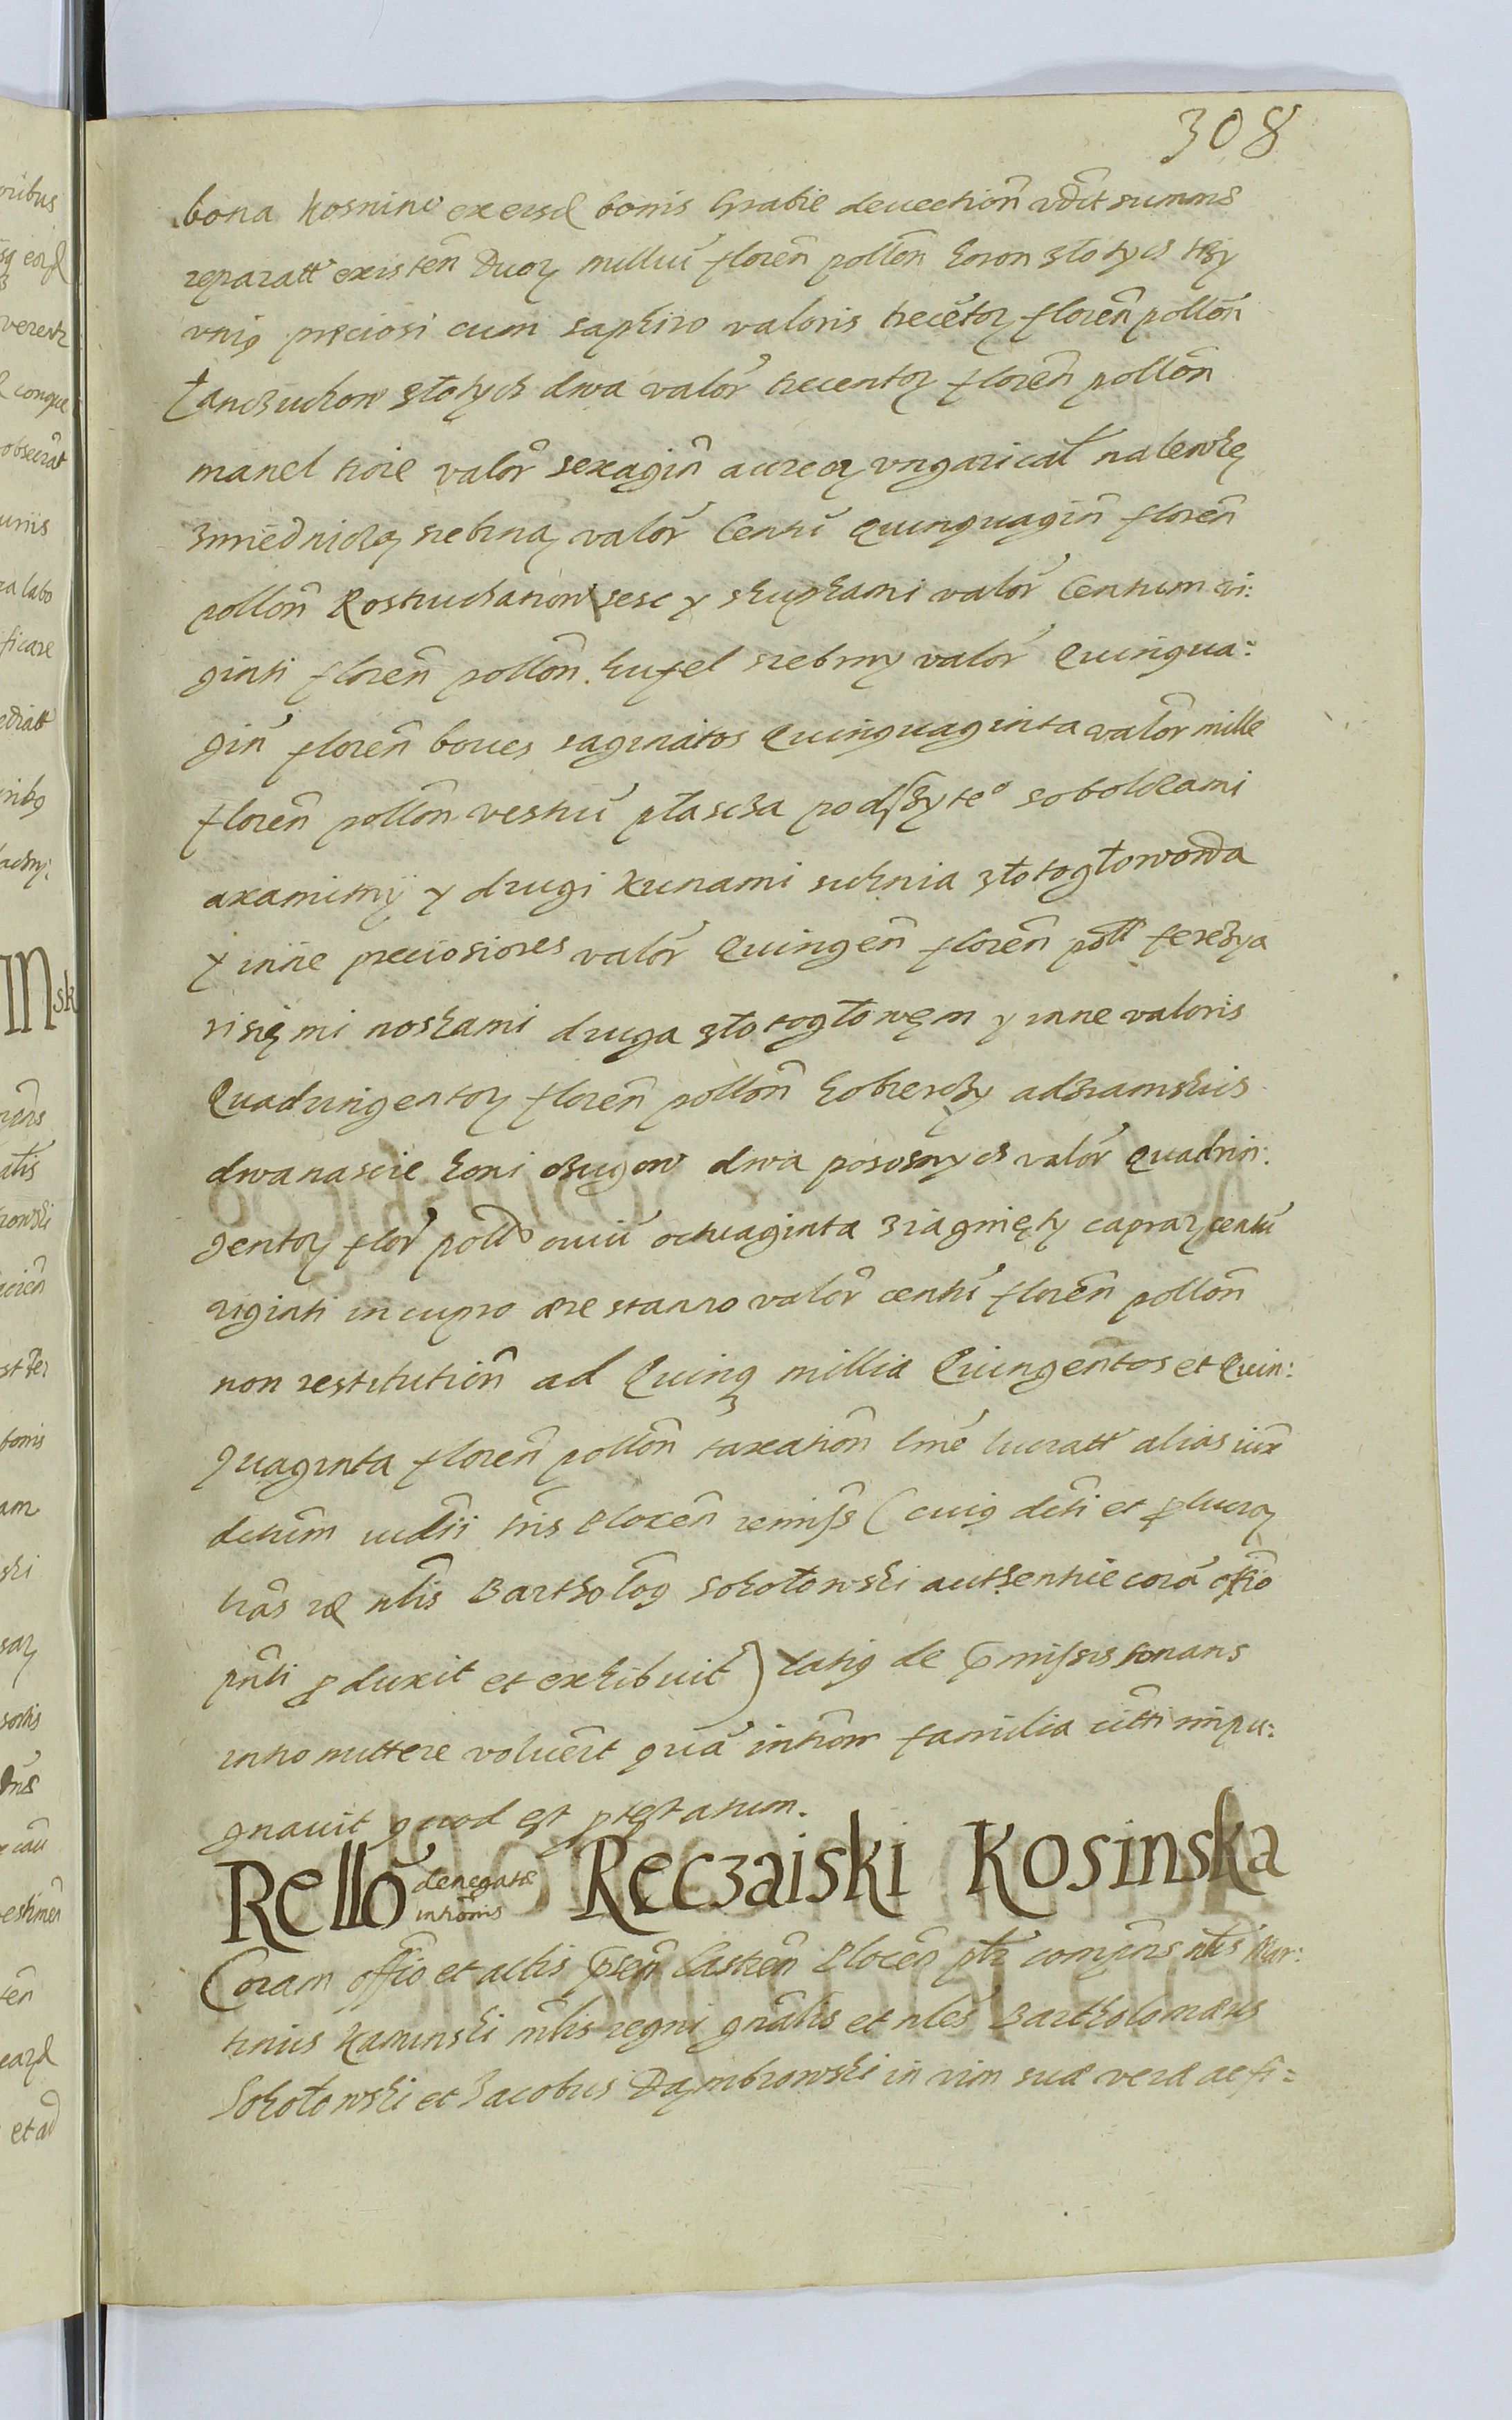 308
bona Kosnino ex eisd bonis Gratie devection vdit summe
reparatt existen Duorz milliu floren pollon koron złotych trzy
vnio preciosi cum saphiro valoris trecetorz floren pollon
Łanczuchow złotych dwa valor trecentorz floren pollon
manel troie valor sexagin aureorz vngarical nalewkę
z miednicką srebrną valor Centu Quinquagin floren
pollon Rostruchanow sesc y skupkami valor Centum vi:
ginti floren pollon. kufel srebrny valor Quinqua:
gin floren boues saginatos Quinquaginta valor mille
floren pollon vestiu płascza podszyteo sobolkami
axamitny y drugi Kunami suknia złotogłowowa
y inne preciosiores valor Quingen floren poll ferezya
risięmi noskami druga złotogłowęm y inne valoris
Quadringentorz floren pollon kobierczy adziamskis
dwanascie koni czugow dwa pososnych valor Quadrin:
gentorz flor poll oviu octuaginta z iagnięty caprarz centu
viginti in cupro ære stanno valor centu floren pollon
non restitution ad Quinq millia Quingentos et Quin:
quaginta floren pollon taxation lme lucratt alias iux
detum iudii tris Plocen remiss (cuiq deti et p lucrarz
tras idem nlis Bartholog Sokołowski authentice cora offio
pnti pduxit et exhibuit) latig de pmissis sonans
intromittere voluert qua introm familia citti impu:
gnauit quod est ptestatum.
Rello denegatæ intromis Reczaiski Kosinska
Coram offio et actis psen Castren Plocen ptr comprns nlis Mar:
tinus Kaminski mlis regni gnalis et nles Bartholomæus
Sokołowski et Jacobus Dąmbrowski in vim suæ veræ ac fi=